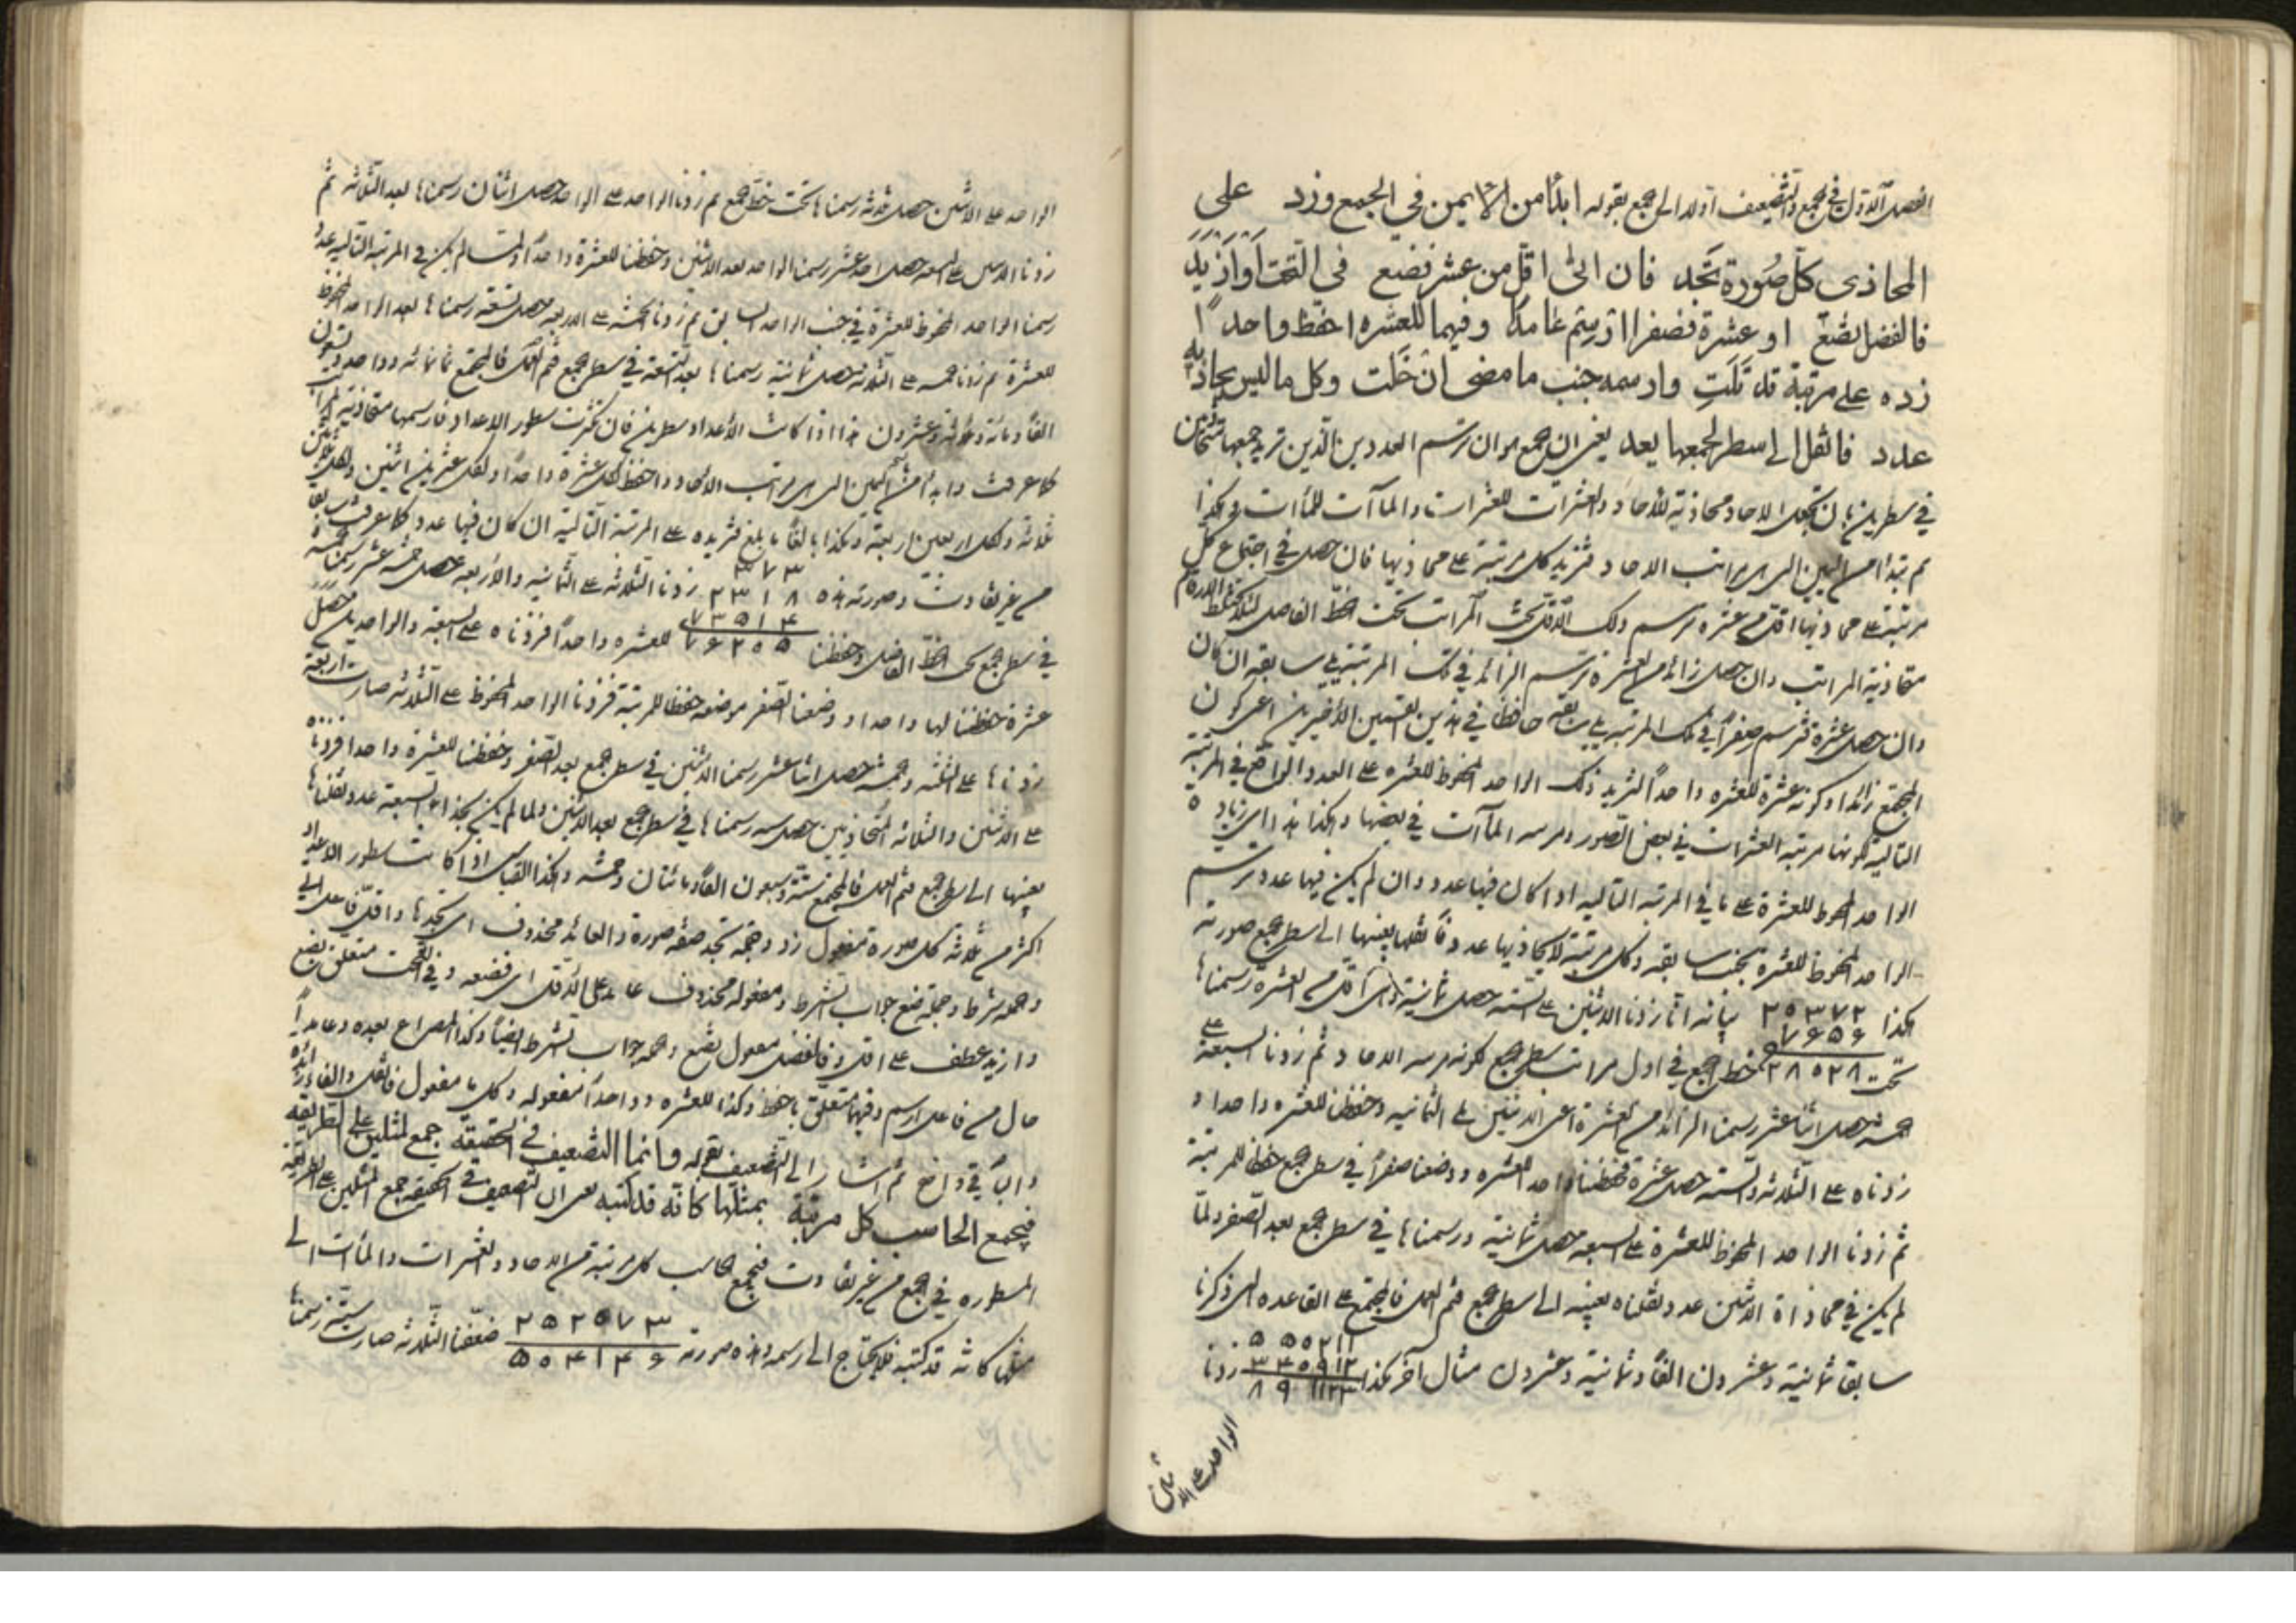 الفصل الاول في الجمع والتضعيف اولا الى الجمع بقوله ابدأ من الايمن في الجمع وزد على
المحاذي كل صورة تجد فان الى اقل من عشر فضع في التحت او ازيد
فالفضل تضع او عشرة فصفرا ارسم غامدا وفيهما للعشرة احفظ واحدا
زده على مرتبة قد تلت وارسمه جنب ما مضى ان خلت وكل ما ليس يحاذيه
عدد فانقل الى سطر لجمعها يعد يعني ان الجمع هو ان ترسم العددين الذين تريد جمعهما
في سطرين بان تجعل الاحاد محاذية للاحاد والعشرات للعشرات والمآت للمآت وهكذا
ثم تبدأ من اليمين الى مراتب الاحاد فتزيد كل مرتبة على محاذيها فان حصل في اجتماع كل
مرتبة على محاذيها اقل من عشرة ترسم ذلك الاقل تحت المراتب تحت الخط الفاصل
متحاذية المراتب وان حصل زائد من العشرة ترسم الزائد في تلك المرتبة يلي سابقه ان كان
وان حصل عشرة فترسم صفرا في تلك المرتبة يلي سابقه حافظا في هذين القسمين الاخيرين اعني كون
المجتمع زائدا وكونه عشرة للعشرة واحدا لتزيد ذلك الواحد المحفوظ للعشرة على العدد الواقع في المرتبة
التالية كونها مرتبة العشرات في بعض الصور ومرتبة المآت في بعضها وهكذا هذا اي زيادة
الواحد المحفوظ للعشرة على ما في المرتبة التالية اذا كان فيها عدد وان لم يكن فيها عدد ترسم
الواحد المحفوظ للعشرة بجنب سابقه وكل مرتبة لا يحاذيها عدد فانقلها بعينها الى سطر الجمع صورته
هكذا ٢٠٣٧٢ بيانه انا زدنا الاثنين على الستة حصل ثمانية اقل من العشرة رسمناها
٧٦٥٦
تحت ٢٨٠٢٨ خط الجمع في اول مراتب سطر الجمع كونه مرتبة الاحاد ثم زدنا السبعة على
خمسة حصل اثنا عشر رسمنا الزائد من العشرة اعني الاثنين يلي الثمانية وحفظنا للعشرة واحدا و
زدناه على الثلاثة والستة حصل عشرة فحفظنا واحدا للعشرة ووضعنا صفرا في سطر الجمع حفظا للمرتبة
ثم زدنا الواحد المحفوظ للعشرة على السبعة حصل ثمانية ورسمناها في سطر الجمع بعد الصفر ولما
لم يكن في محاذاة الاثنين عدد نقلناه بعينه الى سطر الجمع فتم العمل فالمجتمع على القاعدة التي ذكرنا
سابقا ثمانية وعشرون الفا وثمانية وعشرون مثال آخر هكذا زدنا
٥٥٠٢١١
٣٤٥٩١٢
٨٩٦١٢٣
الواحد على الاثنين
الواحد على الاثنين حصل ثلثة رسمناها تحت خط الجمع ثم زدنا الواحد على الواحد حصل اثنان رسمناها بعد الثلاثة ثم
زدنا الاثنين على التسعة حصل احد عشر رسمنا الواحد بعد الاثنين وحفظنا للعشرة واحدا ولما لم يكن في المرتبة التالية عدد
رسمنا الواحد المحفوظ للعشرة في جنب الواحد السابق ثم زدنا الخمسة على الاربعة حصل تسعة رسمناها بعد الواحد المحفوظ
للعشرة ثم زدنا خمسة على الثلاثة حصل ثمانية رسمناها بعد التسعة في سطر الجمع فتم العمل فالمجتمع ثمانمائة وواحد وتسعون
الفا ومائة وثلاثة وعشرون هذا اذا كانت الاعداد سطرين فان كثرت سطور الاعداد فارسمها متحاذية المراتب
كما عرفت وابدأ من اليمين الى مراتب الاحاد واحفظ لكل عشرة واحدا ولكل عشرين اثنين ولكل ثلثين
ثلاثة ولكل اربعين اربعة وهكذا بالغا ما بلغ فتزيده على المرتبة التالية ان كان فيها عدد كما عرفت سابقا
من غير تفاوت وصورته هذه زدنا الثلاثة على الثمانية والاربعة حصل خمسة عشر رسمنا خمسة
٣٧٣
٢٣١٨
٧٣٥١٤
٧٦٢٠٥
في سطر الجمع تحت الخط الفاصل وحفظنا للعشرة واحدا فزدناه على السبعة والواحدين حصل
عشرة حفظنا لها واحدا ووضعنا الصفر موضعه حفظا للمرتبة فزدنا الواحد المحفوظ على الثلاثة صارت اربعة
زدناها على الثلثة وخمسة حصل اثنا عشر رسمنا الاثنين في سطر الجمع بعد الصفر وحفظنا للعشرة واحدا فزدناه
على الاثنين والثلاثة المتحاذيين حصل ستة رسمناها في سطر الجمع بعد الاثنين ولما لم يكن بحذاء السبعة عدد نقلناها
بعينها الى سطر الجمع فتم العمل فالمجتمع ستة وسبعون الفا ومائتان وخمسة وهكذا القياس اذا كانت سطور الاعداد
اكثر من ثلاثة كل صورة مفعول زد وجملة تجد صفة صورة والعائد محذوف اي تجدها واقل فاعل الى
وجملة شرط وجملة تضع جواب الشرط ومفعوله محذوف عائد على الاقل اي فضعه وفي التحت متعلق بضع
وازيد عطف على اقل وفالفضل مفعول تضع وجملة جواب الشرط ايضا وكذا المصراع بعده وعامدا
حال من فاعل ارسم وفيهما متعلق باحفظ وكذا للعشرة وواحدا مفعوله وكل ما مفعول فانقل والفاء زائدة
والباقي واضح ثم اشار الى التضعيف بقوله وانما التضعيف في الحقيقة جمع لمثلين على الطريقة
فيجمع الحاسب كل مرتبة بمثلها كانه قد كتبه يعني ان التضعيف في الحقيقة جمع المثلين على الطريقة
المسطورة في الجمع من غير تفاوت فيجمع الحاسب كل مرتبة من الاحاد والعشرات والمآت الى
مثلها كانه قد كتبه فلا يحتاج الى رسمه وهذه صورته ٢٥٢٠٧٣ ضعفنا الثلاثة صارت ستة رسمناها
٥٠٤١٤٦